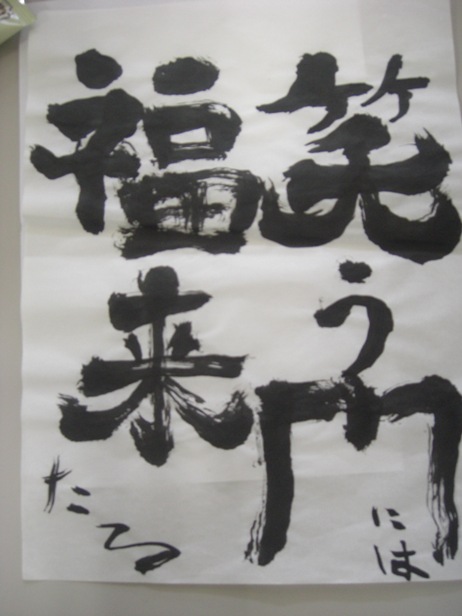 笑う門には
福来たる